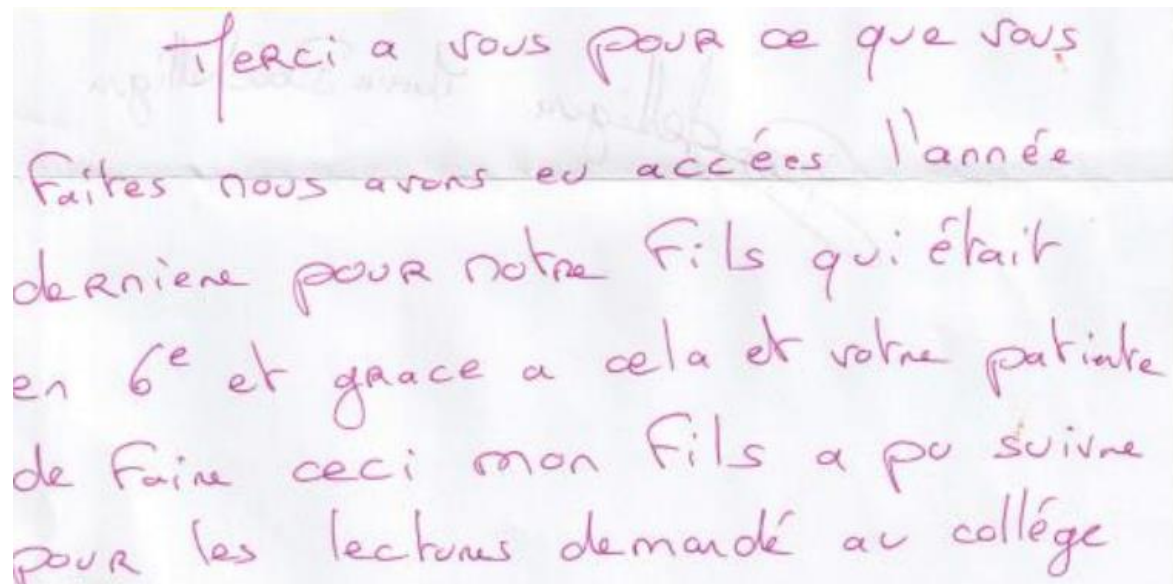 Merci a vous pour ce que vous
faites nous avons eu accées l'année
derniere pour notre fils qui était
en 6e et grace a cela et votre patiente
de faire ceci mon fils a pu suivre
pour les lectures demandé au collége